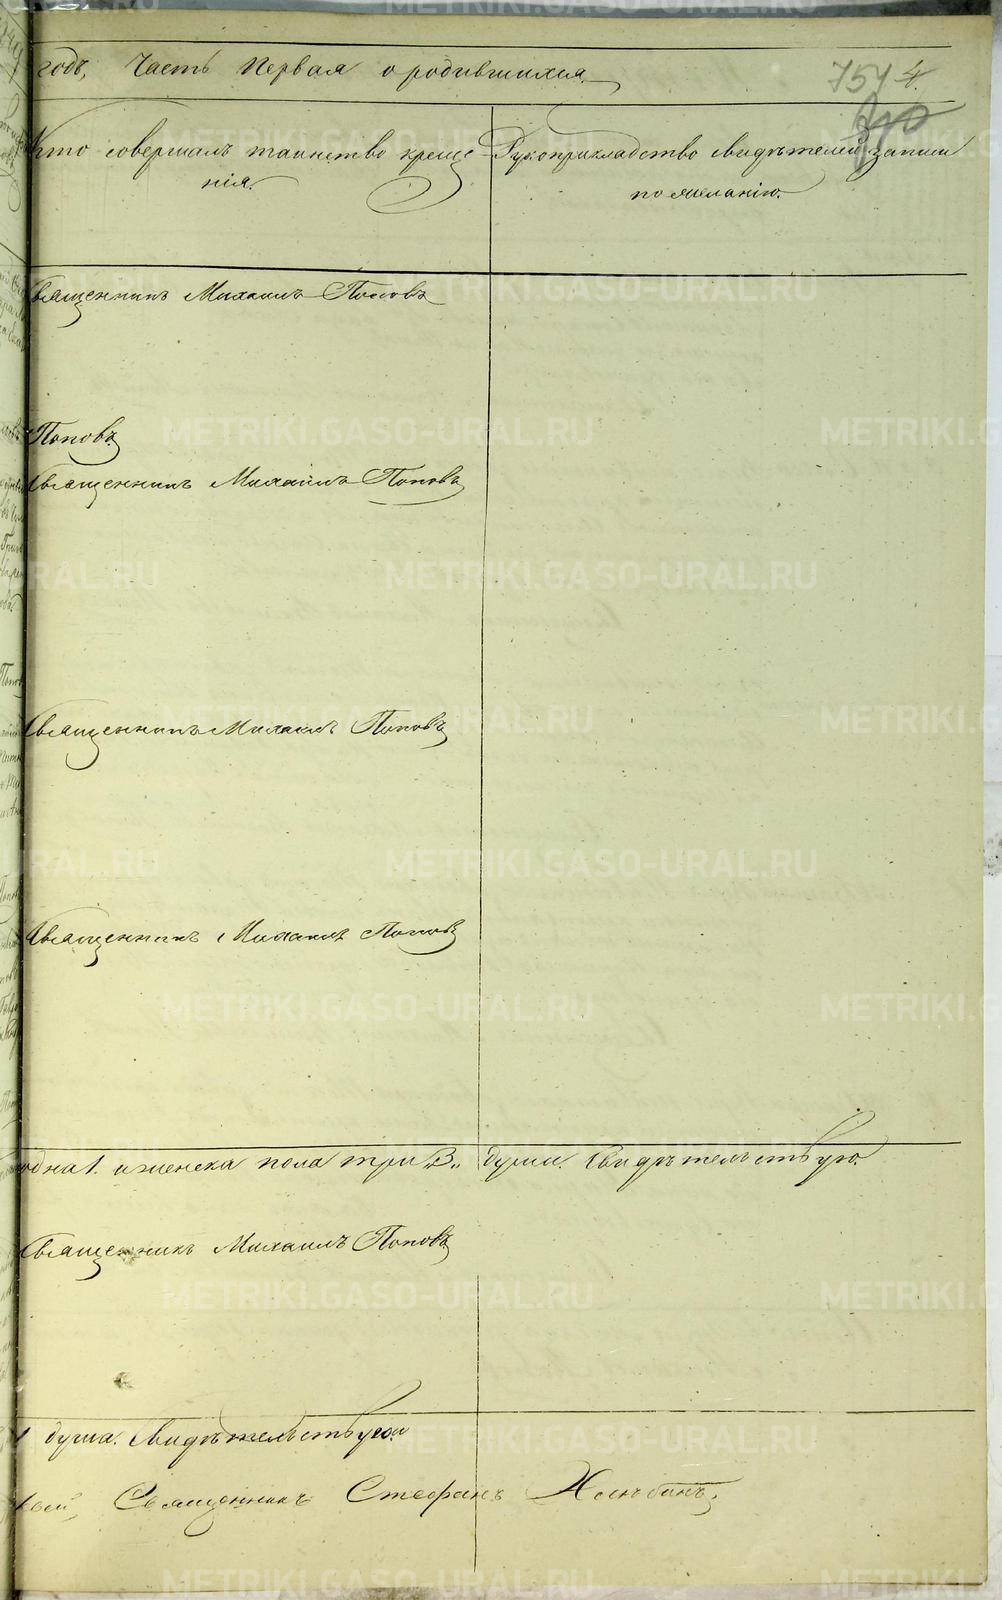 годъ, Часть Первая о родившихся.
757 4.
Кто совершалъ таинство креще-
нія.
Рукоприкладство свидѣтелей записи
по желанію.
Священникъ Михаилъ Поповъ
Поповъ.
Священникъ Михаилъ Поповъ
Священникъ Михаилъ Поповъ
Священникъ Михаилъ Поповъ
одна 1. и женска пола три „3„ души. Свидѣтельствую.
Священникъ Михаилъ Поповъ
1 душа. Свидѣтельствую
Священникъ Стефанъ Хлѣбинъ
METRIKI.GASO-URAL.RU